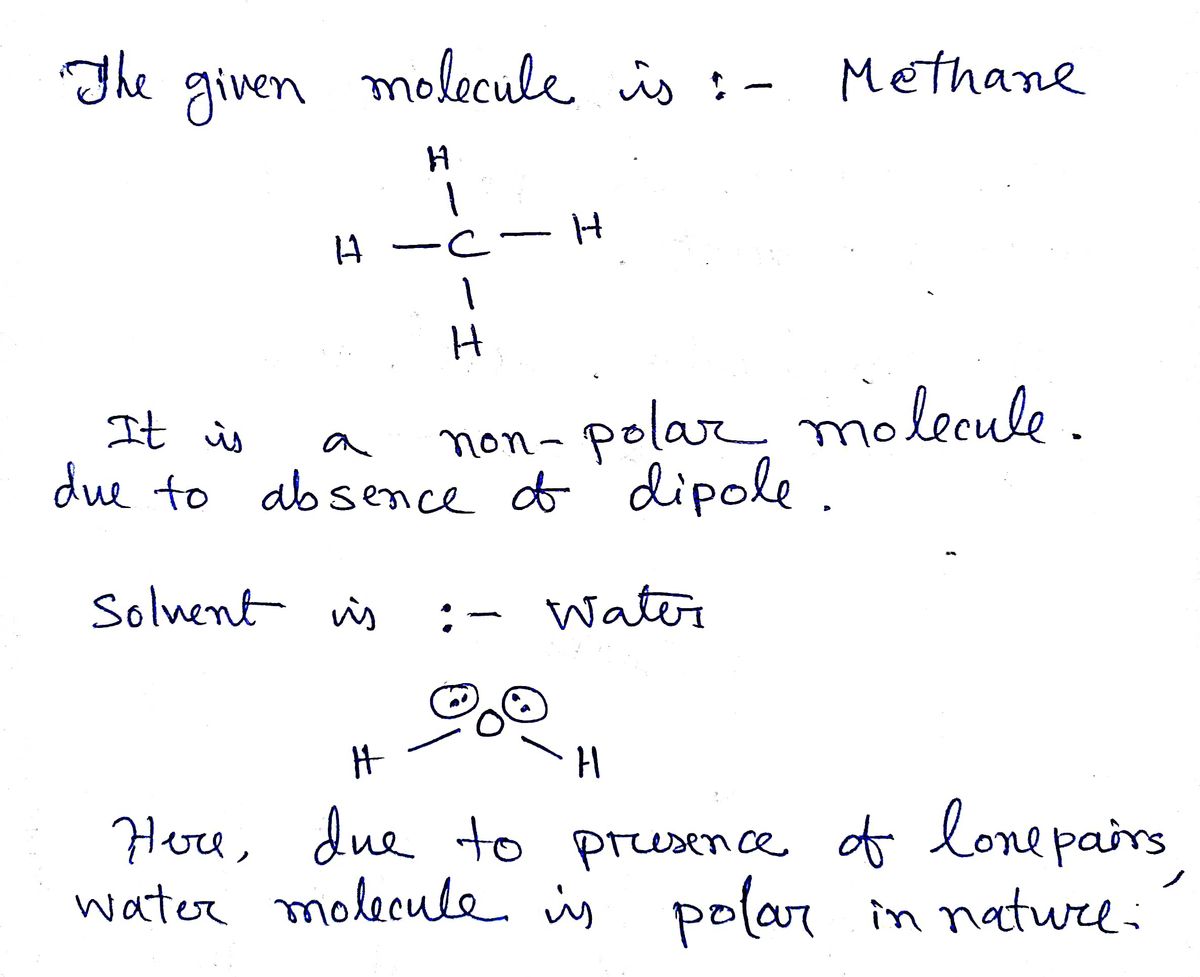 The given molecule is :- Methane
H
H - C - H
H
It is a non-polar molecule.
due to absence of dipole.
Solvent is :- Water
O
H H
Here, due to presence of lone pairs,
water molecule is polar in nature.